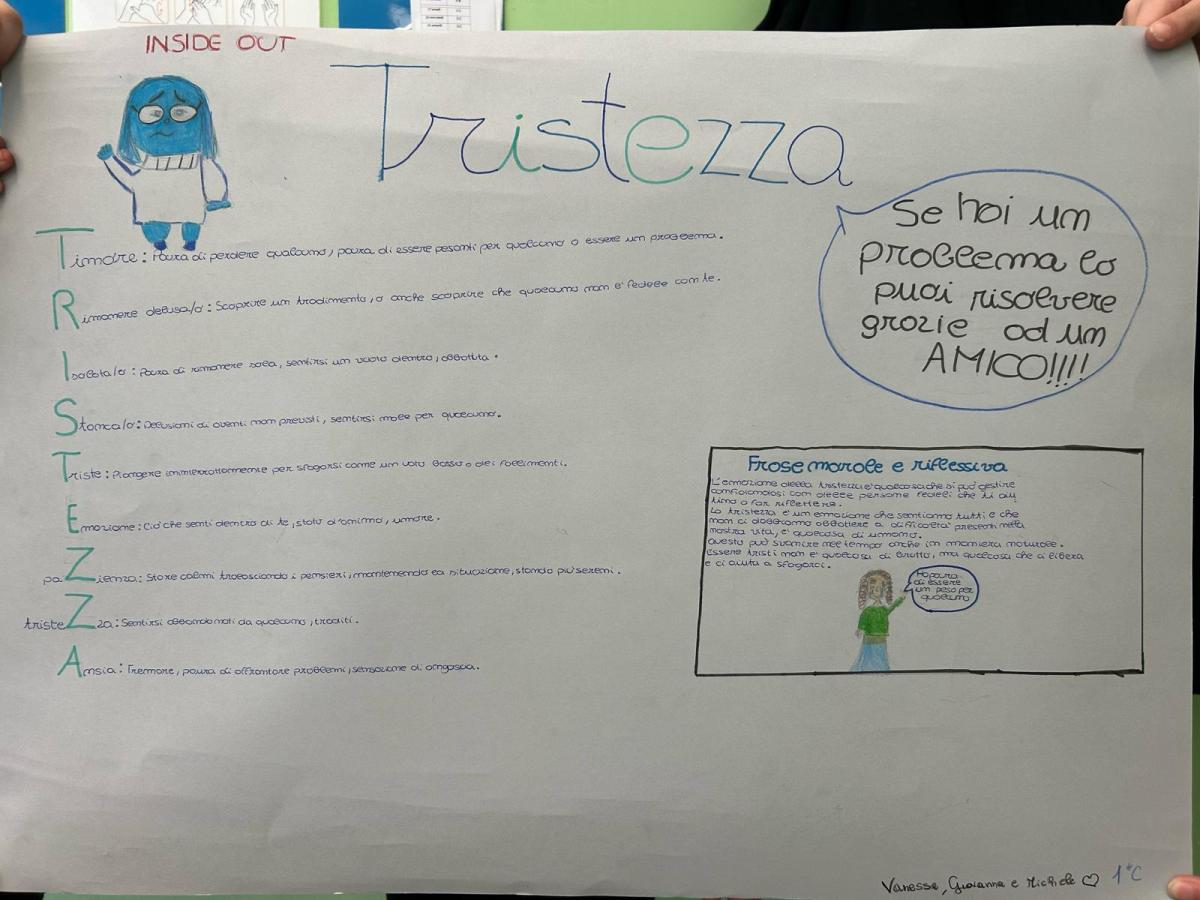 INSIDE OUT
Tristezza
Timore: Paura di perdere qualcuno, paura di essere pesanti per qualcuno o essere un problema.
Rimanere delusa/o: Scoprire un tradimento, o anche scoprire che qualcuno non è fedele con te.
Isolata/o: Paura di rimanere sola, sentirsi un vuoto dentro, abbattuta.
Stanca/o: Delusioni di eventi non previsti, sentirsi male per qualcuno.
Triste: Piangere ininterrottamente per sfogarsi come un voto basso o dei fallimenti.
Emozione: Ciò che senti dentro di te, stato d'animo, umore.
paZienza: Stare calmi tralasciando i pensieri, mantenendo la situazione, stando più sereni.
tristeZza: Sentirsi abbandonati da qualcuno, traditi.
Ansia: Tremore, paura di affrontare problemi, sensazione di angoscia.
Se hai un
problema lo
puoi risolvere
grazie ad un
AMICO!!!!
Frase morale e riflessiva
L'emozione della tristezza è qualcosa che si può gestire
confidandosi con delle persone fedeli che ti aiu
tino a far riflettere.
La tristezza è un emozione che sentiamo tutti e che
non ci dobbiamo abbattere a difficoltà presenti nella
nostra vita, è qualcosa di umano.
Questo può svanire nel tempo anche in maniera naturale.
Essere tristi non è qualcosa di brutto, ma qualcosa che ci libera
e ci aiuta a sfogarci.
Ho paura
di essere
un peso per
qualcuno
Vanessa, Giovanna e Michele ♡ 1°C